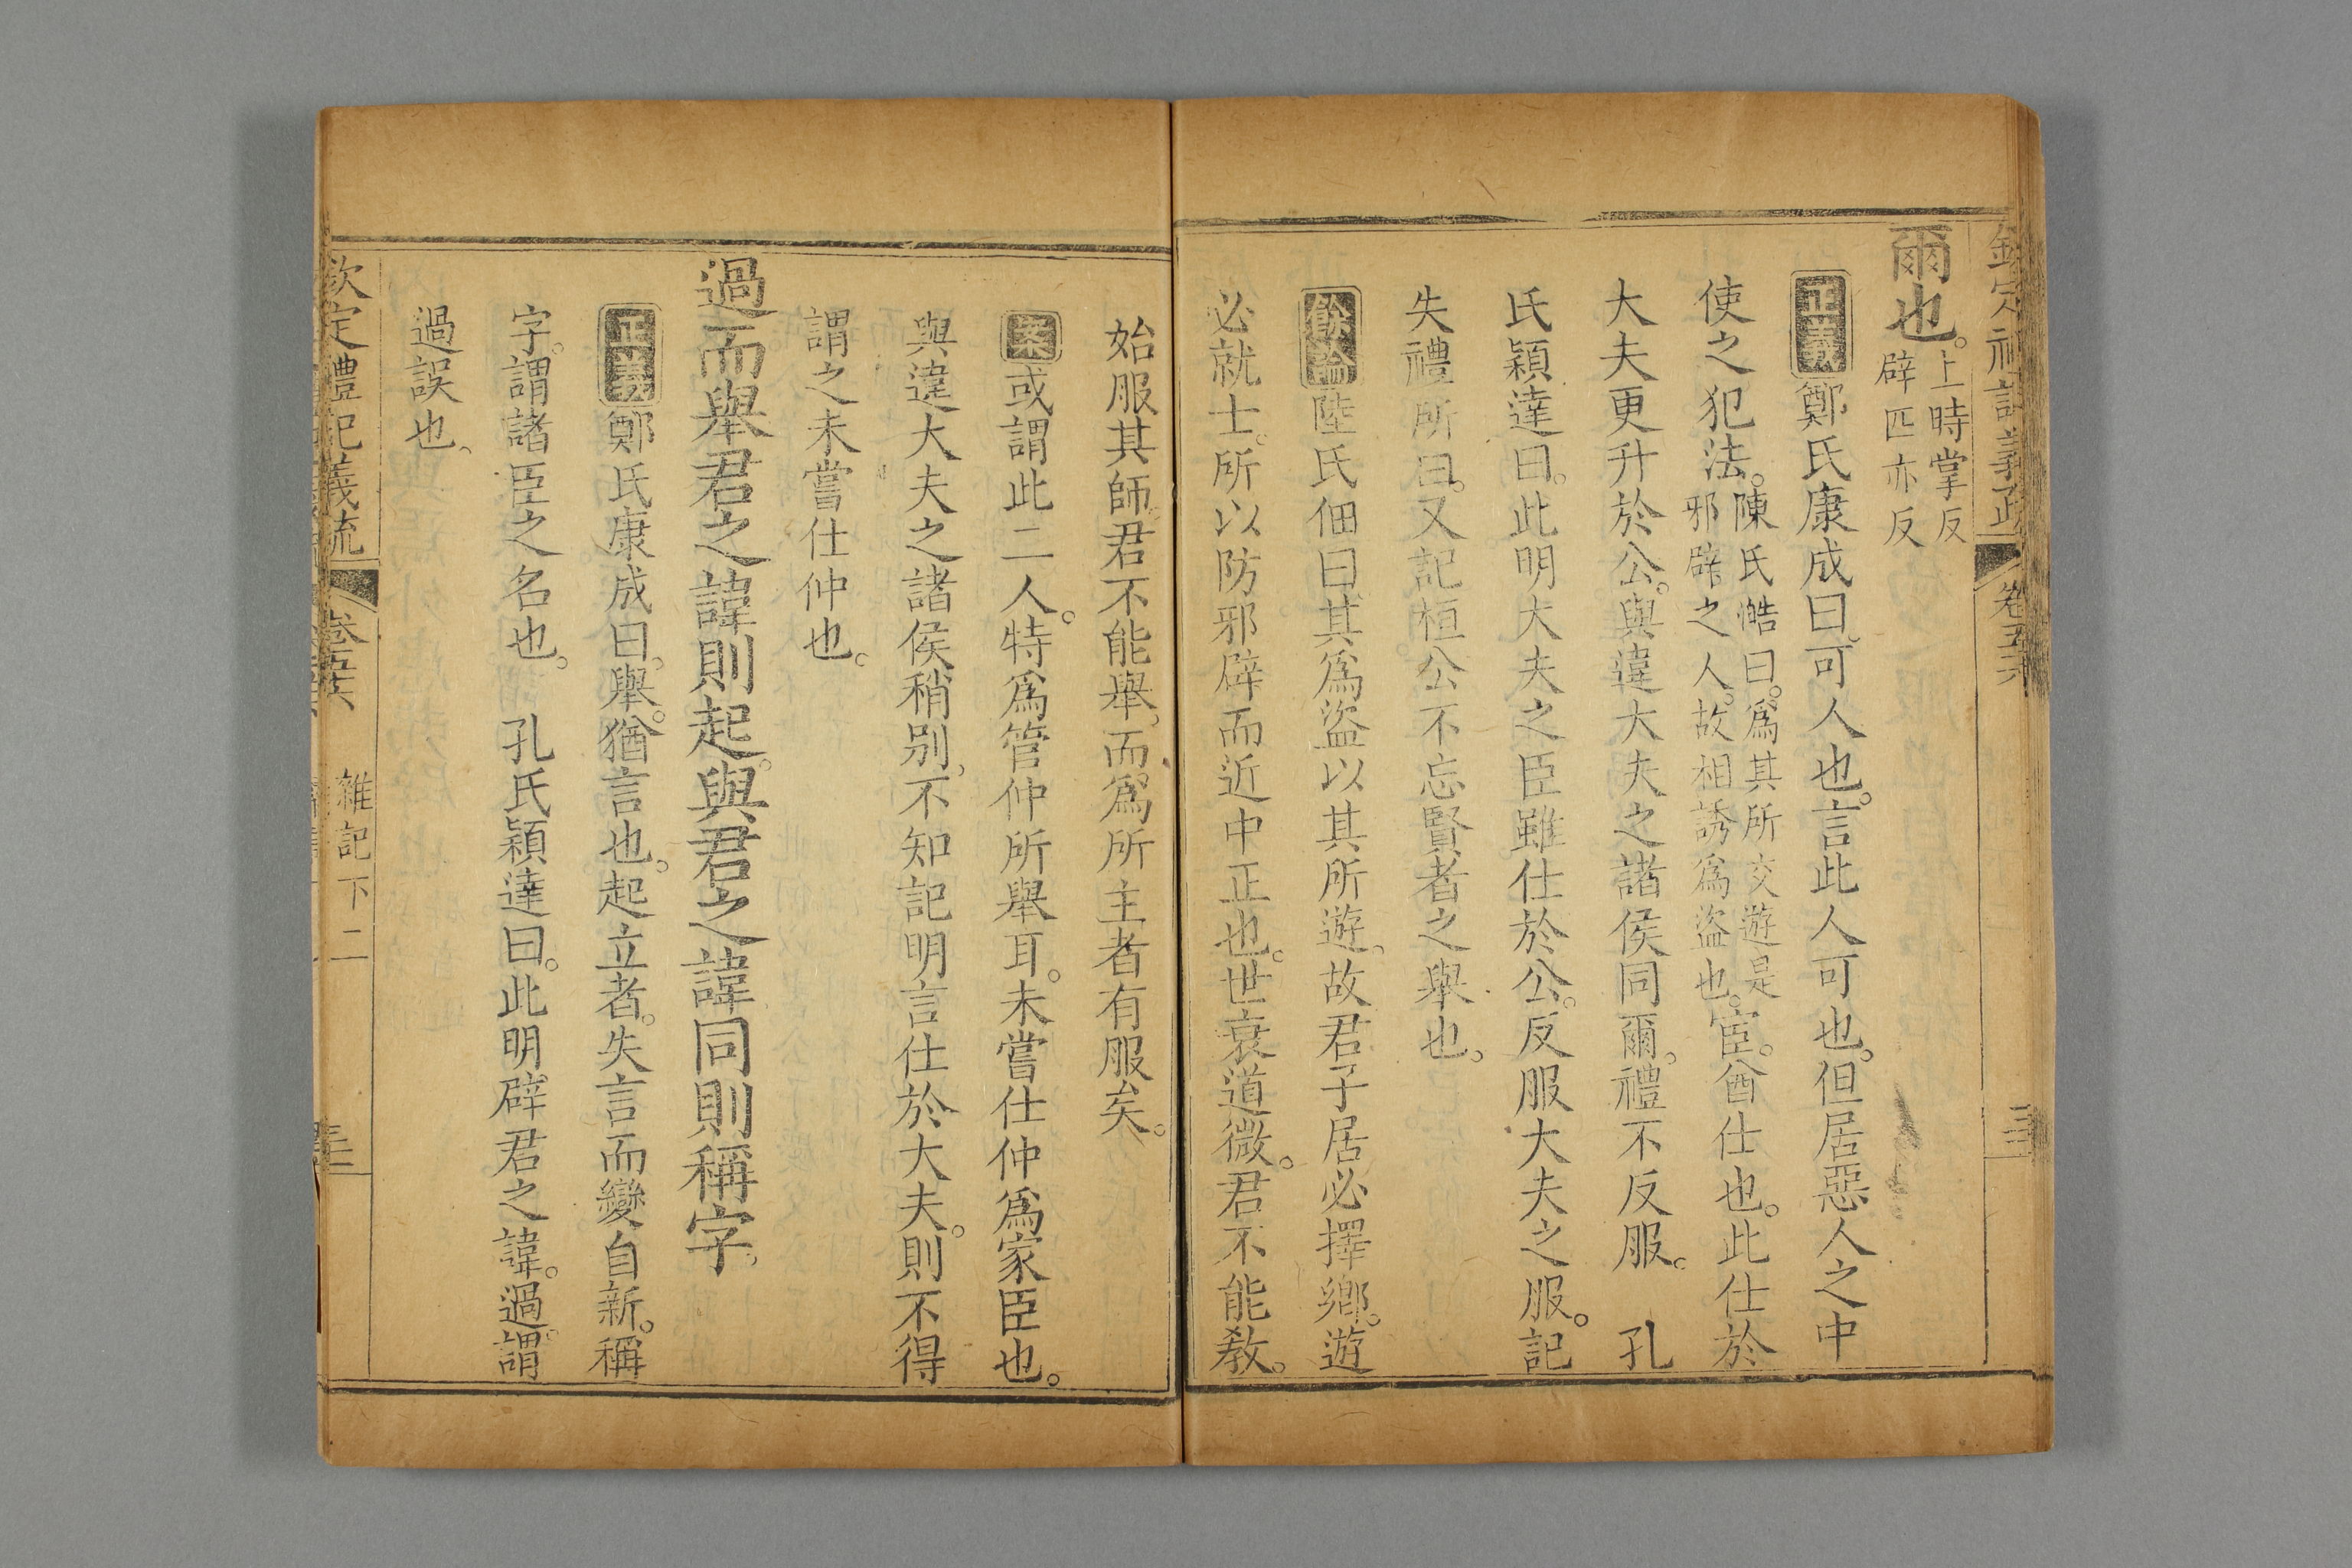 欽定禮記義疏 卷五十六
爾也。上時掌反
辟匹亦反
正義鄭氏康成曰。可人也。言此人可也。但居惡人之中
使之犯法。陳氏澔曰。爲其所交遊是
邪辟之人。故相誘爲盜也。宦。酋仕也。此仕於
大夫更升於公。與違大夫之諸侯同爾。禮不反服。 孔
氏穎達曰。此明大夫之臣雖仕於公。反服大夫之服。記
失禮所由。又記桓公不忘賢者之舉也。
餘論陸氏佃曰。其爲盜以其所遊。故君子居必擇鄉。遊
必就士。所以防邪辟而近中正也。世衰道微。君不能教。
始服其師君不能舉。而爲所主者有服矣。
案或謂此二人。特爲管仲所舉耳。未嘗仕仲爲家臣也。
與違大夫之諸侯稍别。不知記明言仕於大夫。則不得
謂之未嘗仕仲也。
過而舉君之諱則起。與君之諱同則稱字。
正義鄭氏康成曰。舉。猶言也。起立者。失言而變自新。稱
字。謂諸臣之名也。 孔氏穎達曰。此明辟君之諱。過。謂
過誤也。
欽定禮記義疏 卷五十六 雜記下二